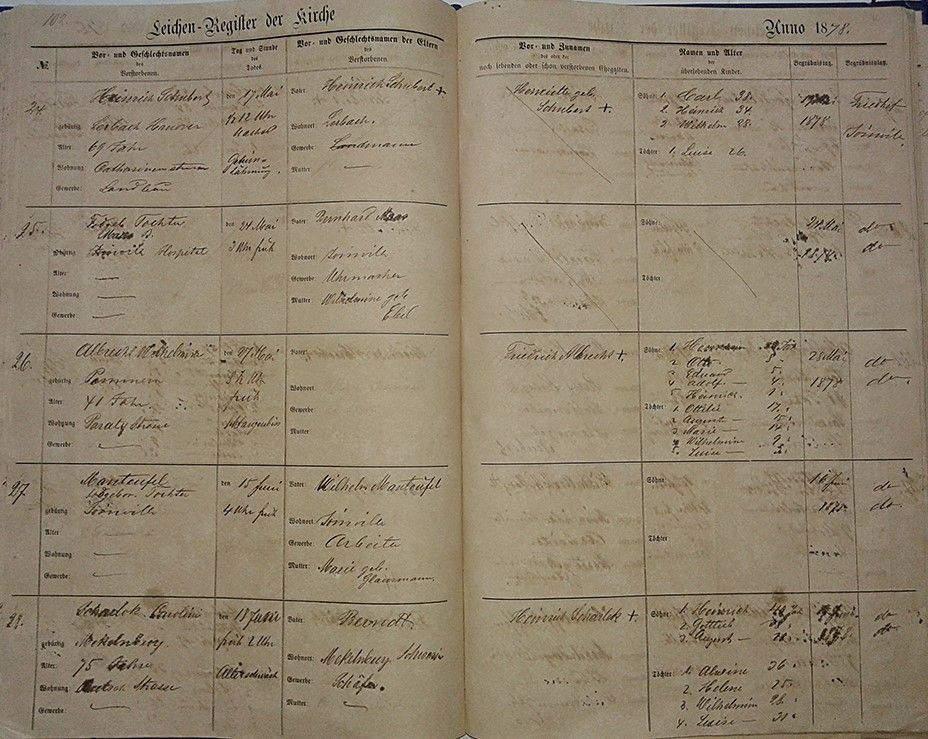 102.
Leichen-Register der Kirche
Anno 1878.
№
Vor- und Geschlechtsnamen
des
Verstorbenen.
Tag und Stunde
des
Todes
Vor- und Geschlechtsnamen der Eltern
des
Verstorbenen
Vor- und Zunamen
des oder der
noch lebenden oder schon verstorbenen Ehegatten.
Namen und Alter
der
überlebenden Kinder.
Begräbnistag.
Begräbnisplatz.
24.
Heinrich Schubert
gebürtig
Lerbach Hanover
Alter
69 Jahr
Wohnung
Catharinenstrasse
Gewerbe:
Landbau
den 17 Mai
12 Uhr
Gehirn-
lähmung.
Vater:
Heinrich Schubert +
Wohnort:
Lerbach.
Gewerbe:
Landmann
Mutter
—
Henriette geb.
Schubert +
Söhne: 1. Carl 38.
2. Heinrich 34.
3 Wilhelm 28.
Töchter: 1. Luise 26.
1878
Friedhof
Joinville
25.
Todtgeb. Tochter
Maas
Joinvile Hospital
Alter
—
Wohnung
—
Gewerbe:
—
den 24 Mai
3 Uhr früh
Vater:
Bernhard Maas
Wohnort
Joinvile
Gewerbe
Uhrmacher
Mutter
Wilhelmine geb.
Ebel
Söhne:
Töchter:
24 Mai
1878.
do
do
26.
Albrecht Wilhelmine
gebürtig
Pommern
Alter:
41 Jahr.
Wohnung
Paraty Strasse
Gewerbe:
—
den 27 Mai
5 Uhr
früh
Vater:
Wohnort:
Gewerbe
Mutter
Friedrich Albrecht +
Söhne: 1. Hermann
2 Otto
3 Eduard
4 Adolf — 4
5 Heinrich.
Töchter: 1. Ottilie 17
2 August
3 Marie — 14
4 Wilhelmine 9
5. Luise —
28 Mai
1878
do
do
27.
Manteufel
todtgebor. Tochter
gebürtig
Joinville
Alter
—
Wohnung
—
Gewerbe:
—
den 15 Juni
4 Uhr früh
Vater:
Wilhelm Manteufel
Wohnort:
Joinville
Gewerbe:
Arbeiter
Mutter:
Marie geb.
Söhne
Töchter:
16 Juni
1878
do
do.
28.
Scharlok Caroline
gebürtig
Mekelnburg
Alter:
75 Jahre
Wohnung
Deutsch Strasse
Gewerbe:
—
den 18 Juni
früh 2 Uhr
Altersschwäche
Vater:
Berndt.
Wohnort:
Mekelnburg Schwerin
Gewerbe:
Schäfer.
Mutter
—
Heinrich Scharlok +
Söhne: 1. Heinrich
2. Gottlieb
3. August
Töchter: 1. Alwine 36
2. Helene
3. Wilhelmine
4. Luise — 30
do
do.